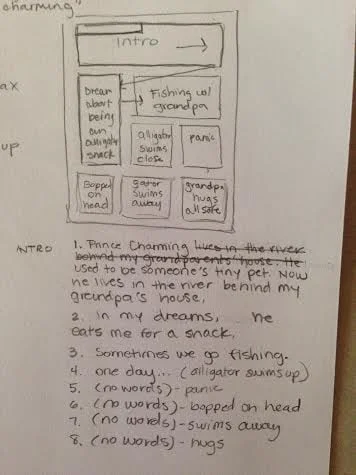 charming"
Intro
Dream
about
being
an
alligator
snack
Fishing w/
grandpa
alligator
swims
close
panic
Bopped
on
head
gator
swims
away
grandpa
hugs
all safe
ax
up
INTRO 1. Prince Charming lives in the river
behind my grandparents' house. He
used to be someone's tiny pet. Now
he lives in the river behind my
grandpa's house.
2. In my dreams, he
eats me for a snack.
3. Sometimes we go fishing.
4. one day... (alligator swims up)
5. (no words) - panic
6. (no words) - bopped on head
7. (no words) - swims away
8. (no words) - hugs